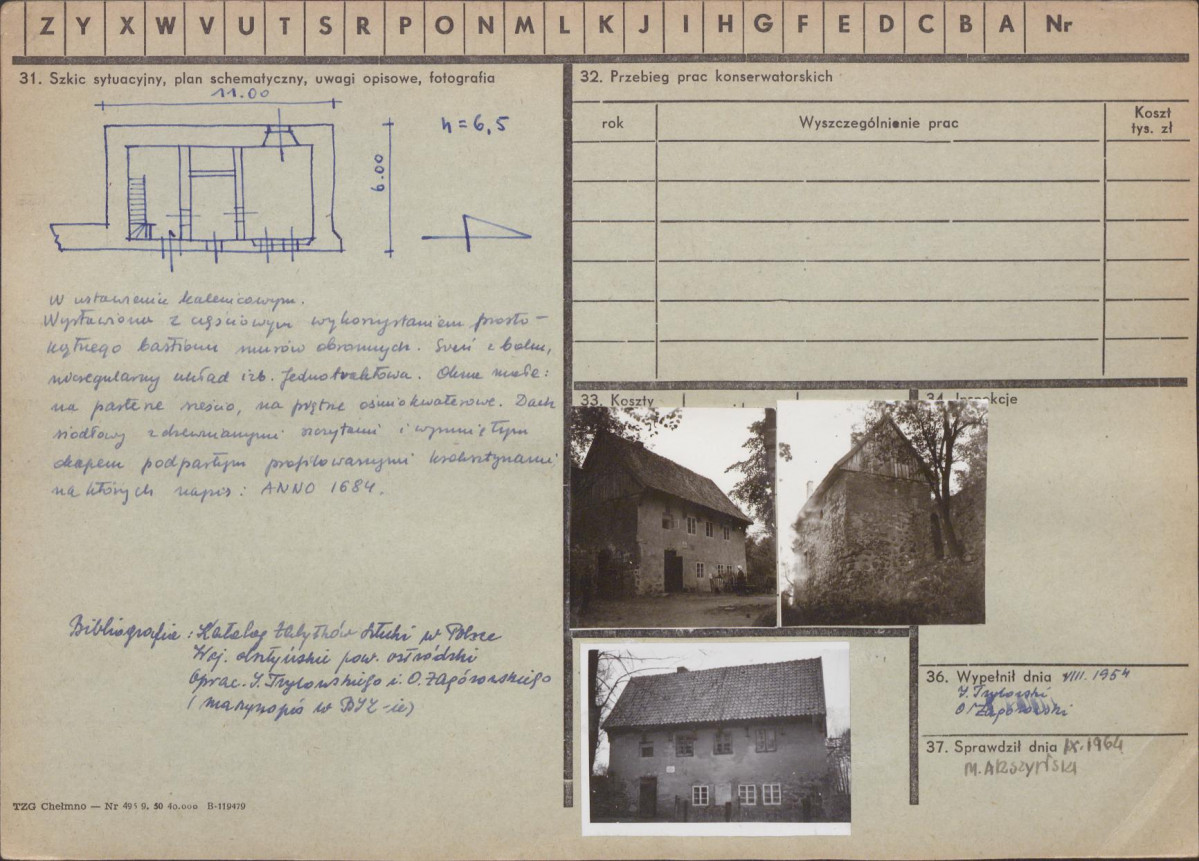 Z Y X W V U T S R P O N M L K J I H G F E D C B A Nr
31. Szkic sytuacyjny, plan schematyczny, uwagi opisowe, fotografia
11.00
h = 6,5
6.00
W ustawieniu kalenicowym.
Wystawiona z częściowym wykorzystaniem prosto-
kątnego bastionu murów obronnych. Sień z boku,
nieregularny układ izb. Jednotraktowa. Okna małe:
na parterze sześcio, na piętrze ośmiokwaterowe. Dach
siodłowy z drewnianymi szczytami i wysuniętym
okapem podpartym profilowanymi kroksztynami
na których napis: ANNO 1684.
Bibliografia: Katalog Zabytków Sztuki w Polsce
Woj. olsztyńskie pow. ostródzki
Oprac. J. Trylowskiego i O. Zagórowskiego
(maszynopis w
TZG Chełmno — Nr 495 9. 50 40.000 B-119479
32. Przebieg prac konserwatorskich
rok
Wyszczególnienie prac
Koszt
tys. zł
33. Koszty
34. Inspekcje
36. Wypełnił dnia VIII. 1954
O. Zagórowski
37. Sprawdził dnia IX. 1964
M. ARSZYŃSKI